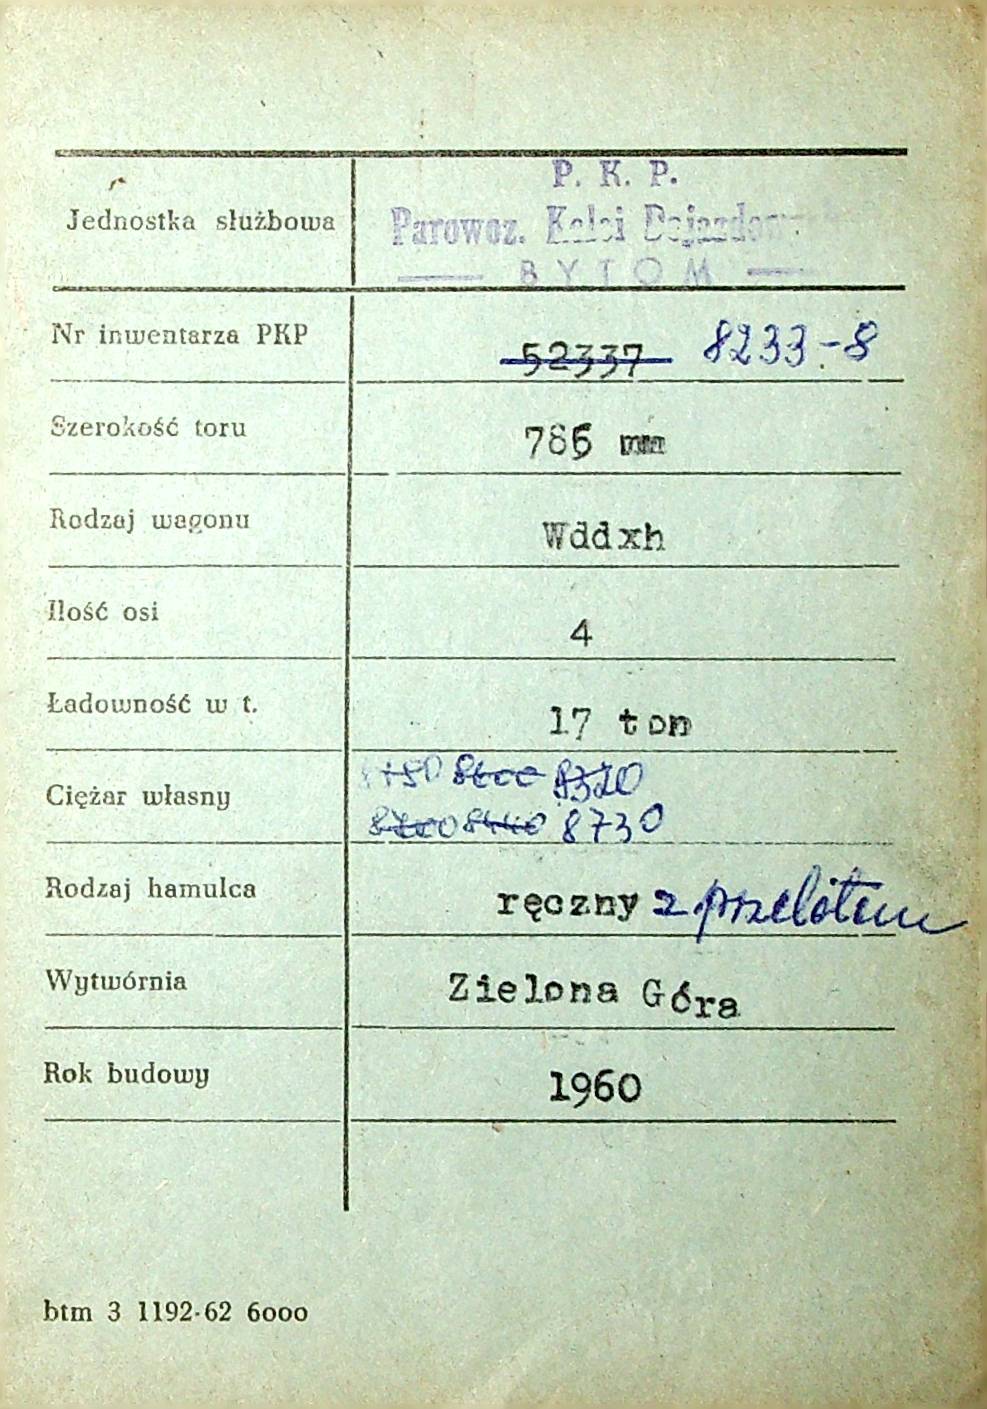 P. K. P.
Jednostka służbowa Parowoz. Kolei Dojazdow
BYTOM
Nr inwentarza PKP 52337 8233-8
Szerokość toru 785 mm
Rodzaj wagonu Wddxh
Ilość osi 4
Ładowność w t. 17 ton
8320
Ciężar własny
8730
Rodzaj hamulca ręczny z przelotem
Wytwórnia Zielona Góra
Rok budowy 1960
btm 3 1192-62 6000